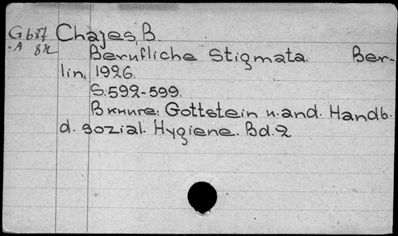 G637 Chajes, B.
.A 82
Berufliche Stigmata. Ber-
lin, 1926.
S. 592-599.
В книге: Gottstein u. and. Handb.
d. sozial. Hygiene. Bd. 2